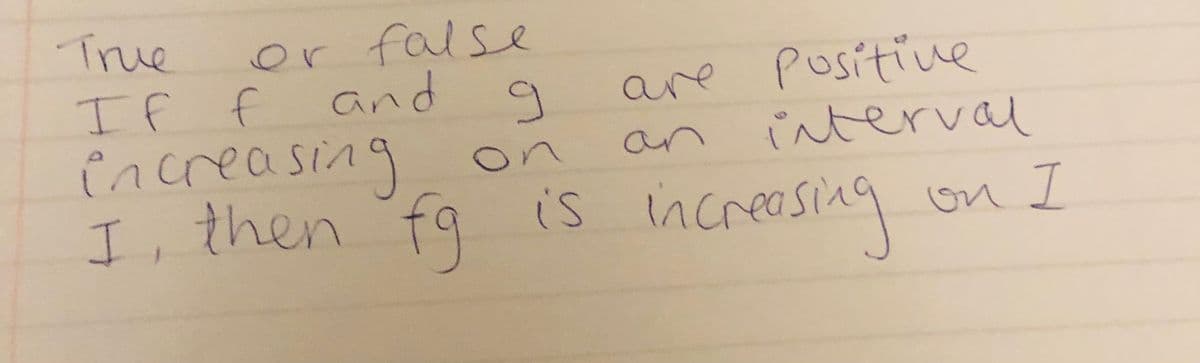 True or false
If f and g are positive
increasing on an interval
I, then fg is increasing on I